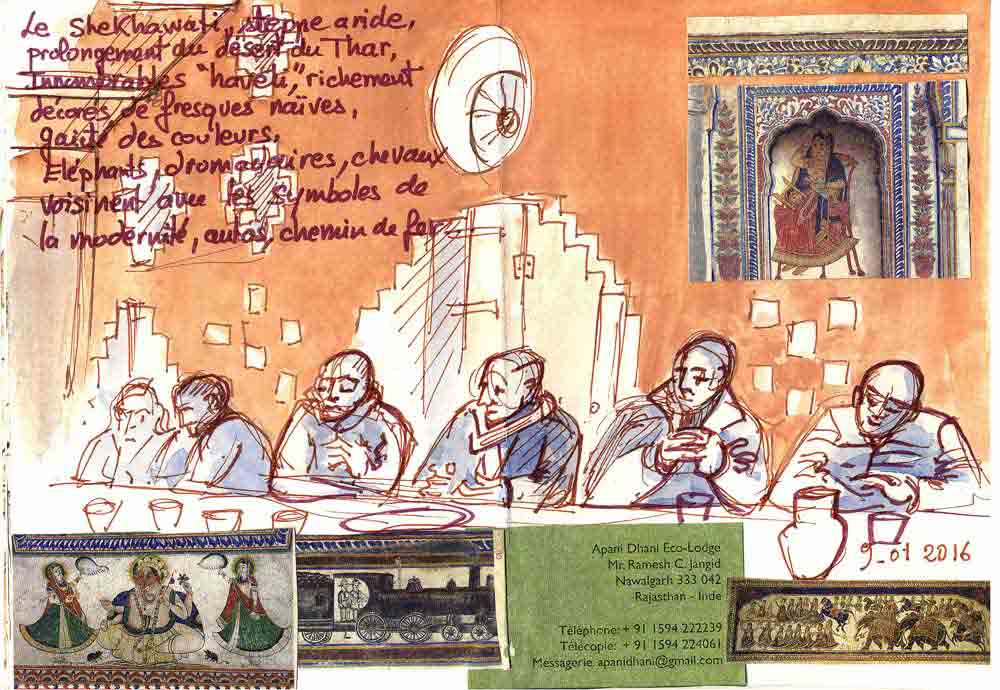 Le Shekhawati, steppe aride,
prolongement du désert du Thar,
Innombrables "haveli", richement
décorés de fresques naïves,
gaité des couleurs.
Eléphants, dromadaires, chevaux
voisinent avec les symboles de
la modernité, autos, chemin de fer
Apani Dhani Eco-Lodge
Mr. Ramesh C. Jangid
Nawalgarh 333 042
Rajasthan - Inde
Téléphone: + 91 1594 222239
Télécopie : + 91 1594 224061
Messagerie apanidhani@gmail.com
9_01 2016